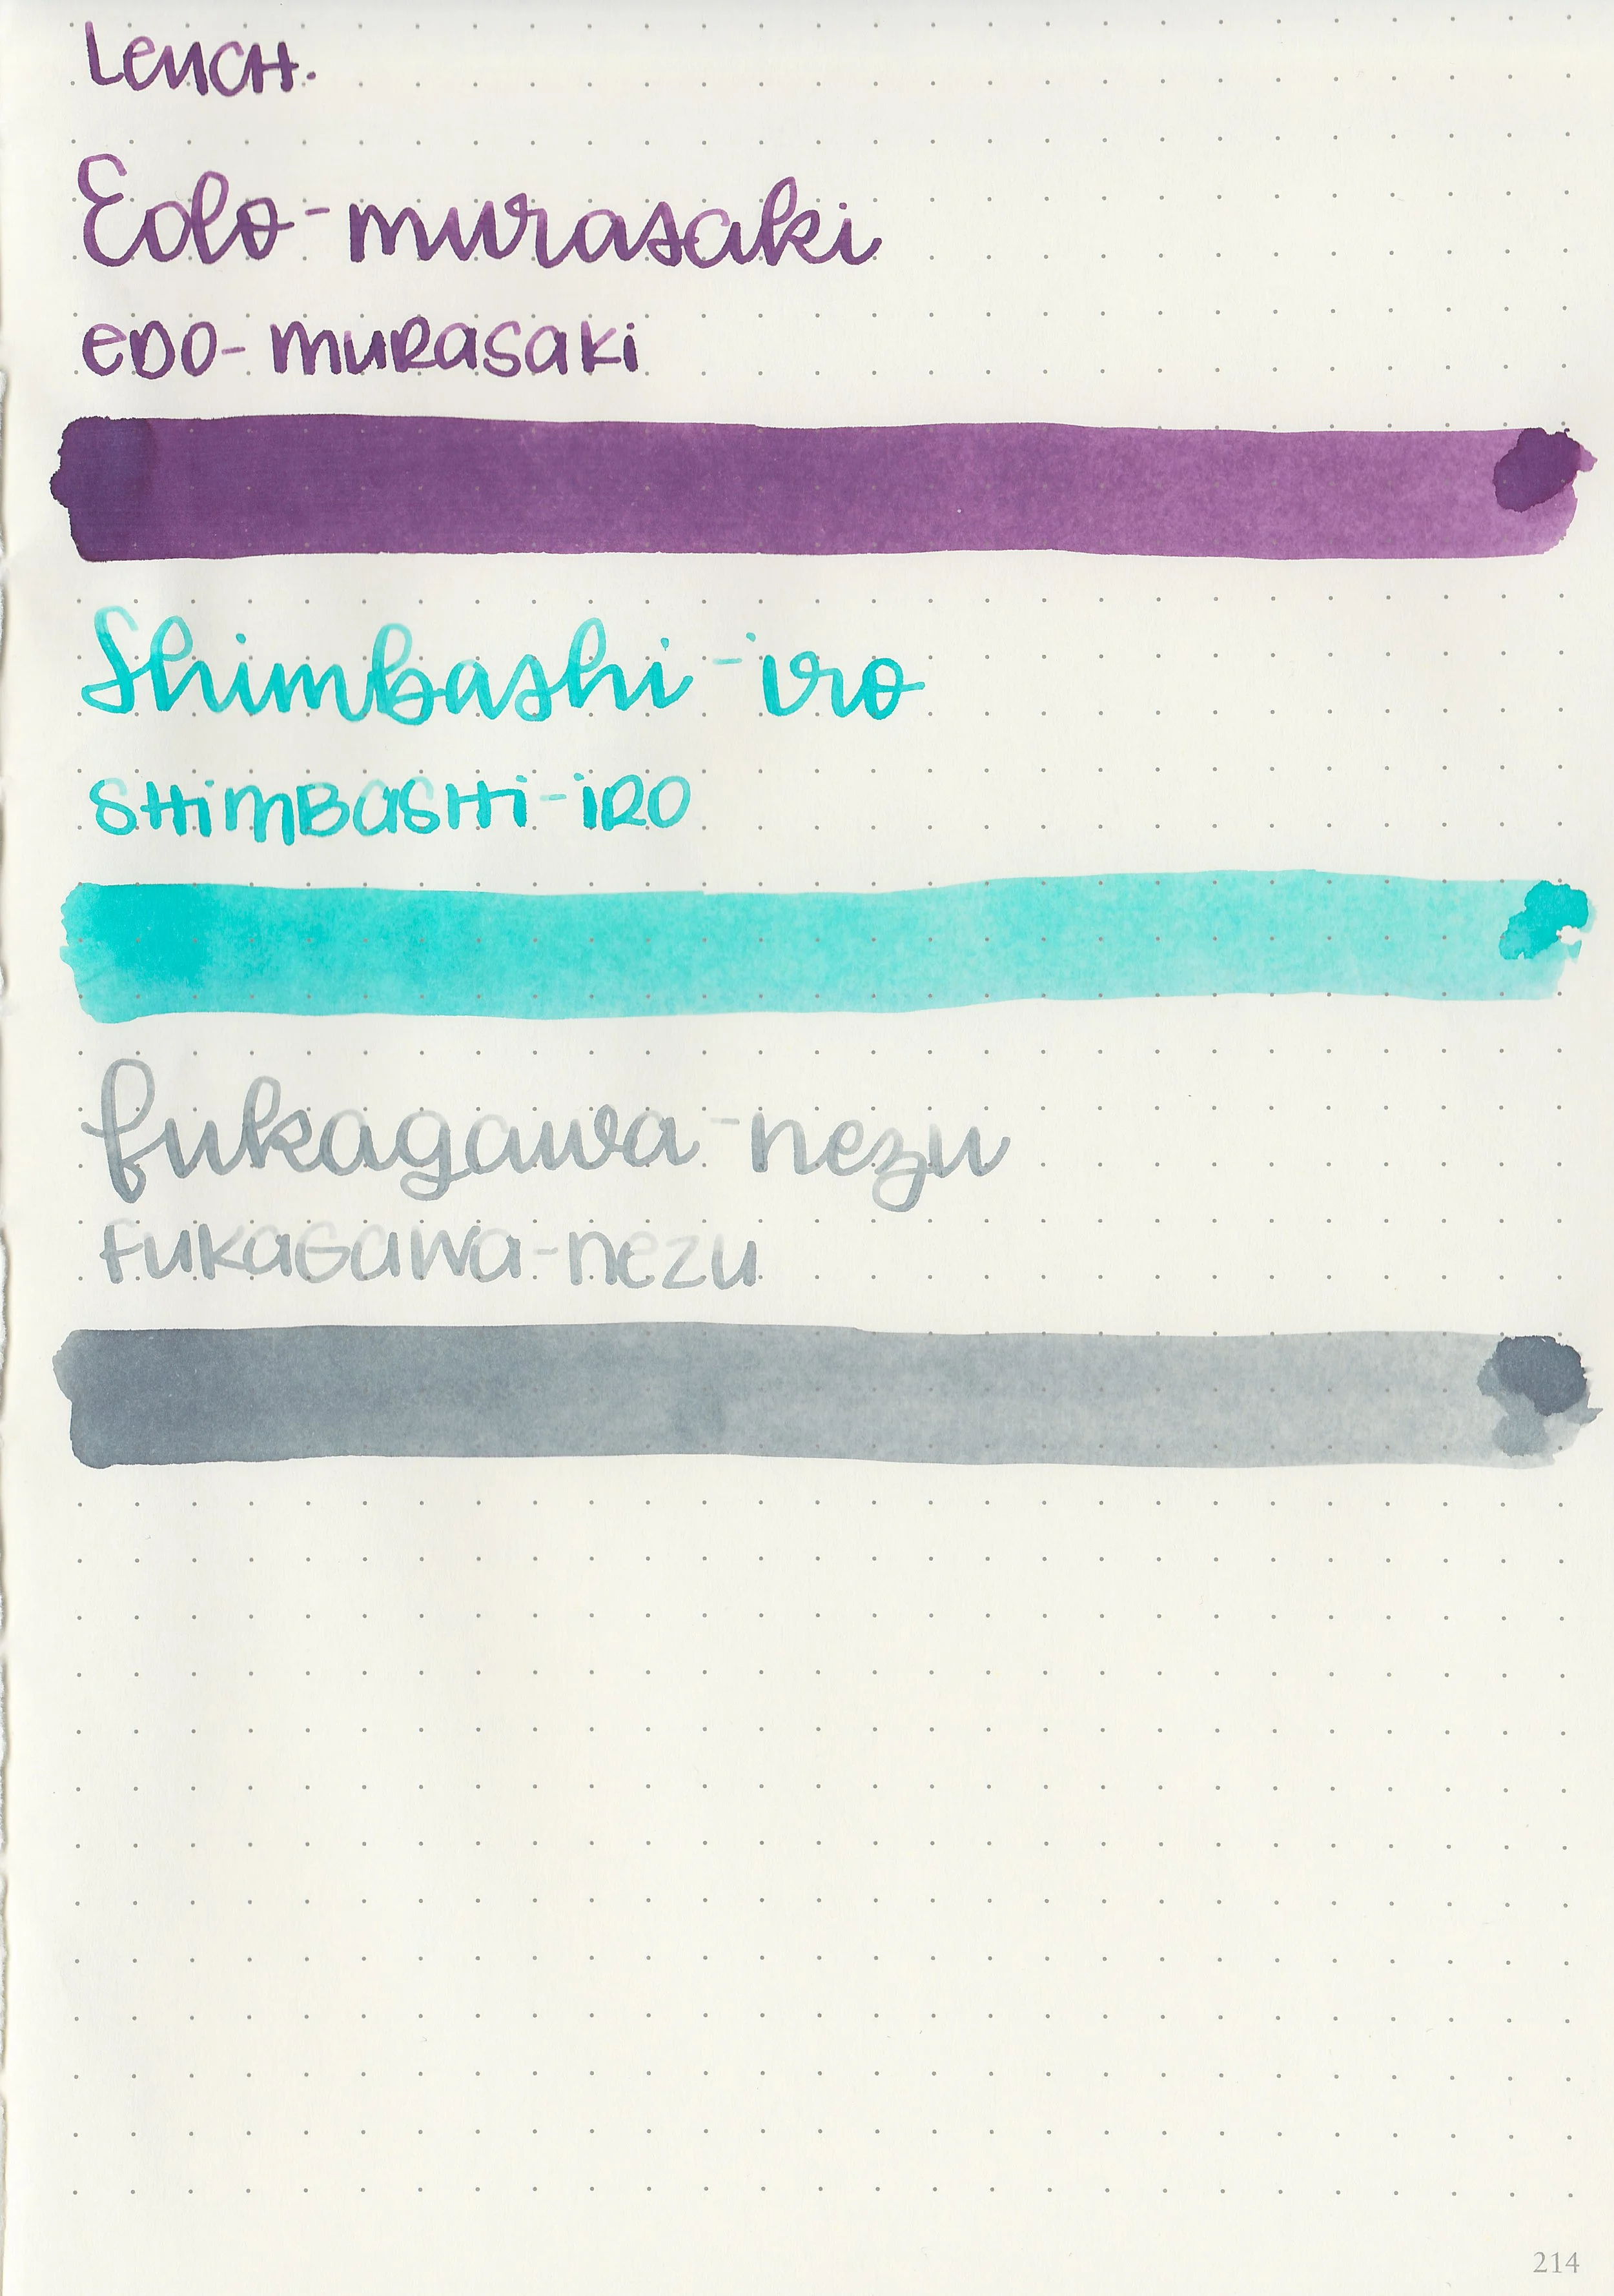 Leuch.
Edo-murasaki
EDO-MURASAKI
Shimbashi-iro
SHIMBASHI-IRO
fukagawa-nezu
FUKAGAWA-nezu
214